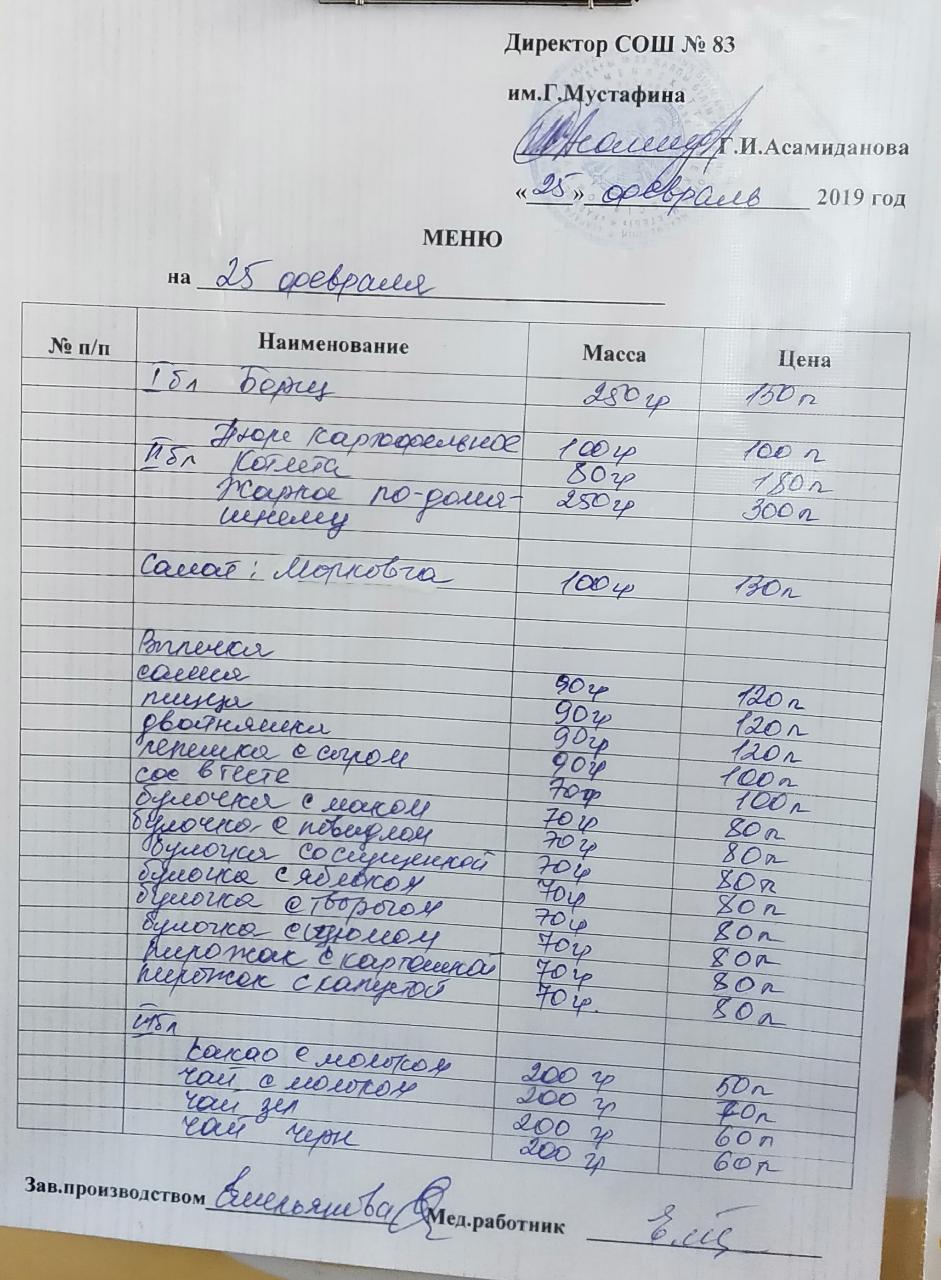 Директор СОШ № 83
им.Г.Мустафина
Г.И.Асамиданова
«25» февраль 2019 год
МЕНЮ
на 25 февраля
№ п/п Наименование Масса Цена
I бл Борщ 250гр 150п
Пюре картофельное 100гр 100п
II бл Котлета 80гр 180п
Жаркое по-дома- 250гр 300п
шнему
Салат: Морковча 100гр 130п
Выпечка
самся 90гр 120п
пицца 90гр 120п
двойняшки 90гр 120п
лепешка с сыром 90гр 100п
сос в тесте 70гр 100п
булочка с маком 70гр 80п
булочка с повидлом 70гр 80п
булочка со сгущенкой 70гр 80п
булочка с яблоком 70гр 80п
булочка с творогом 70гр 80п
булочка с изюмом 70гр 80п
пирожок с картошкой 70гр 80п
пирожок с капустой 70гр. 80п
III бл
какао с молоком 200 гр 50п
чай с молоком 200 гр 70п
чай зел 200 гр 60п
чай черн 200 гр 60п
Зав.производством Емельянова Мед.работник